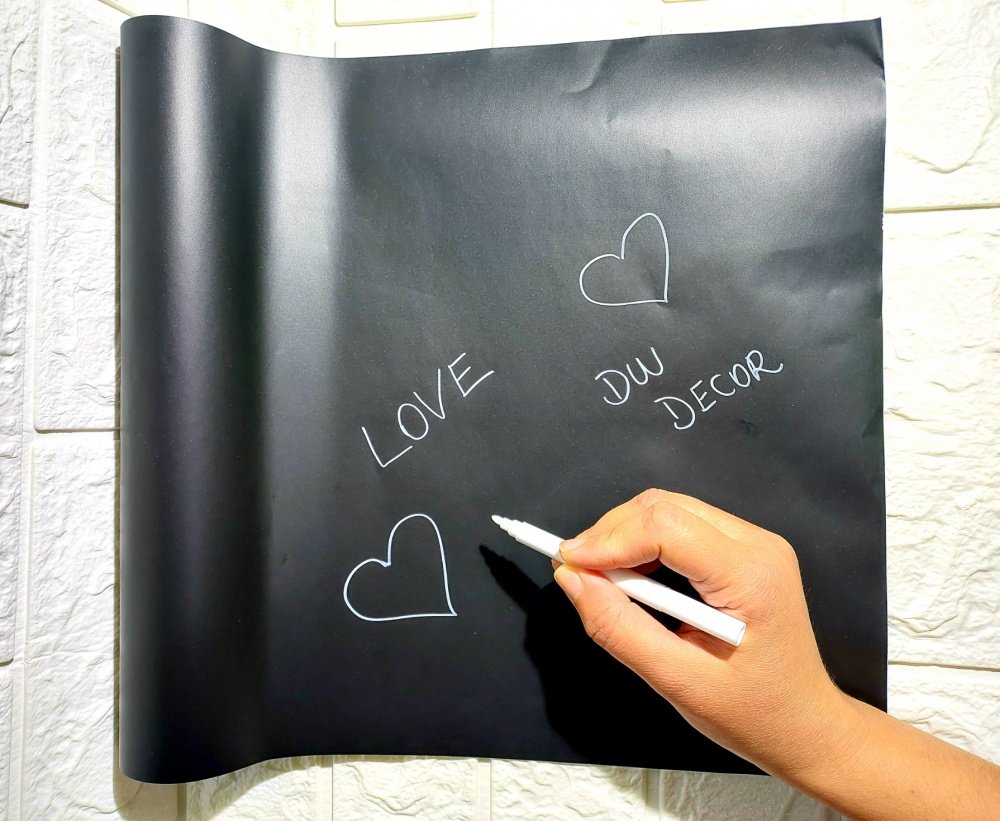 LOVE
DW
DECOR